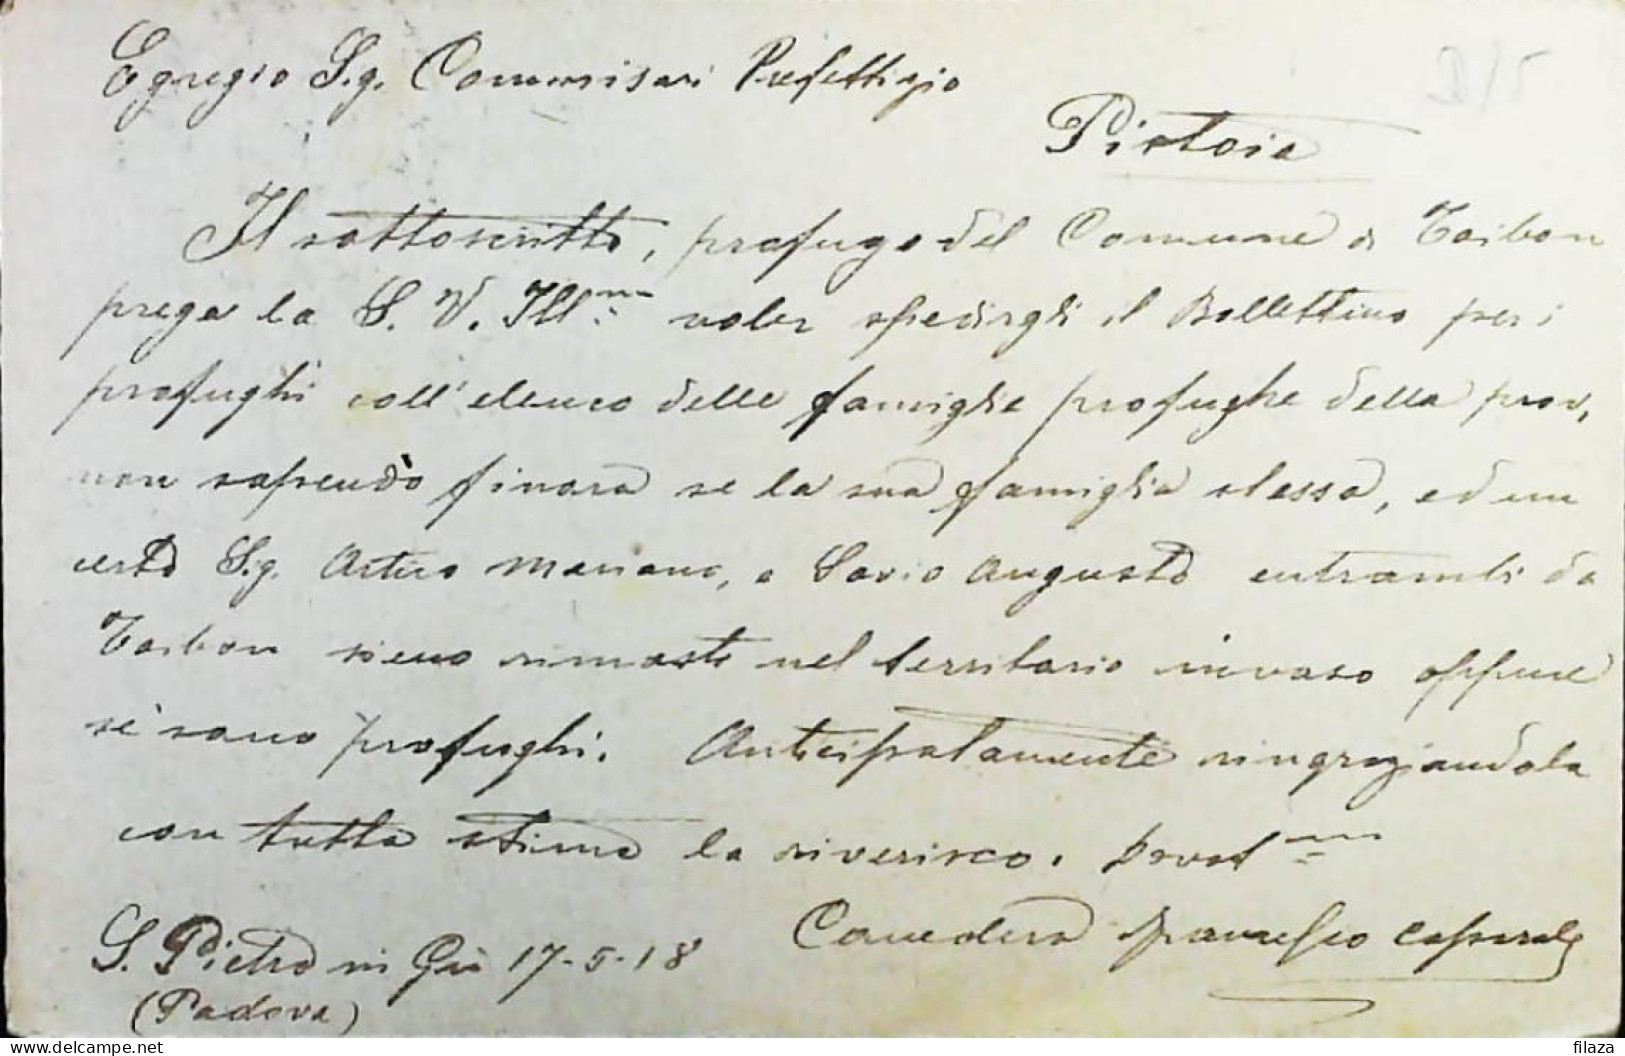 Egregio Sig. Commissari Prefettizio
Pistoia
Il sottoscritto, profugo del Comune di Taibon
prega la S. V. Ill.ma voler spedirgli il Bollettino per i
profughi coll'elenco delle famiglie profughe della prov,
non sapendo finora se la sua famiglia stessa, ed un
certo Sig. Arturo Mariano, e Savio Augusto entrambi da
Taibon sieno rimasti nel territorio invaso oppure
se sono profughi. Anticipatamente ringraziandola
con tutta stima la riverisco. Devot.mo
S. Pietro in Gù 17-5-18
Caneders Francesco Caporale
(Padova)
filaza
delcampe.net